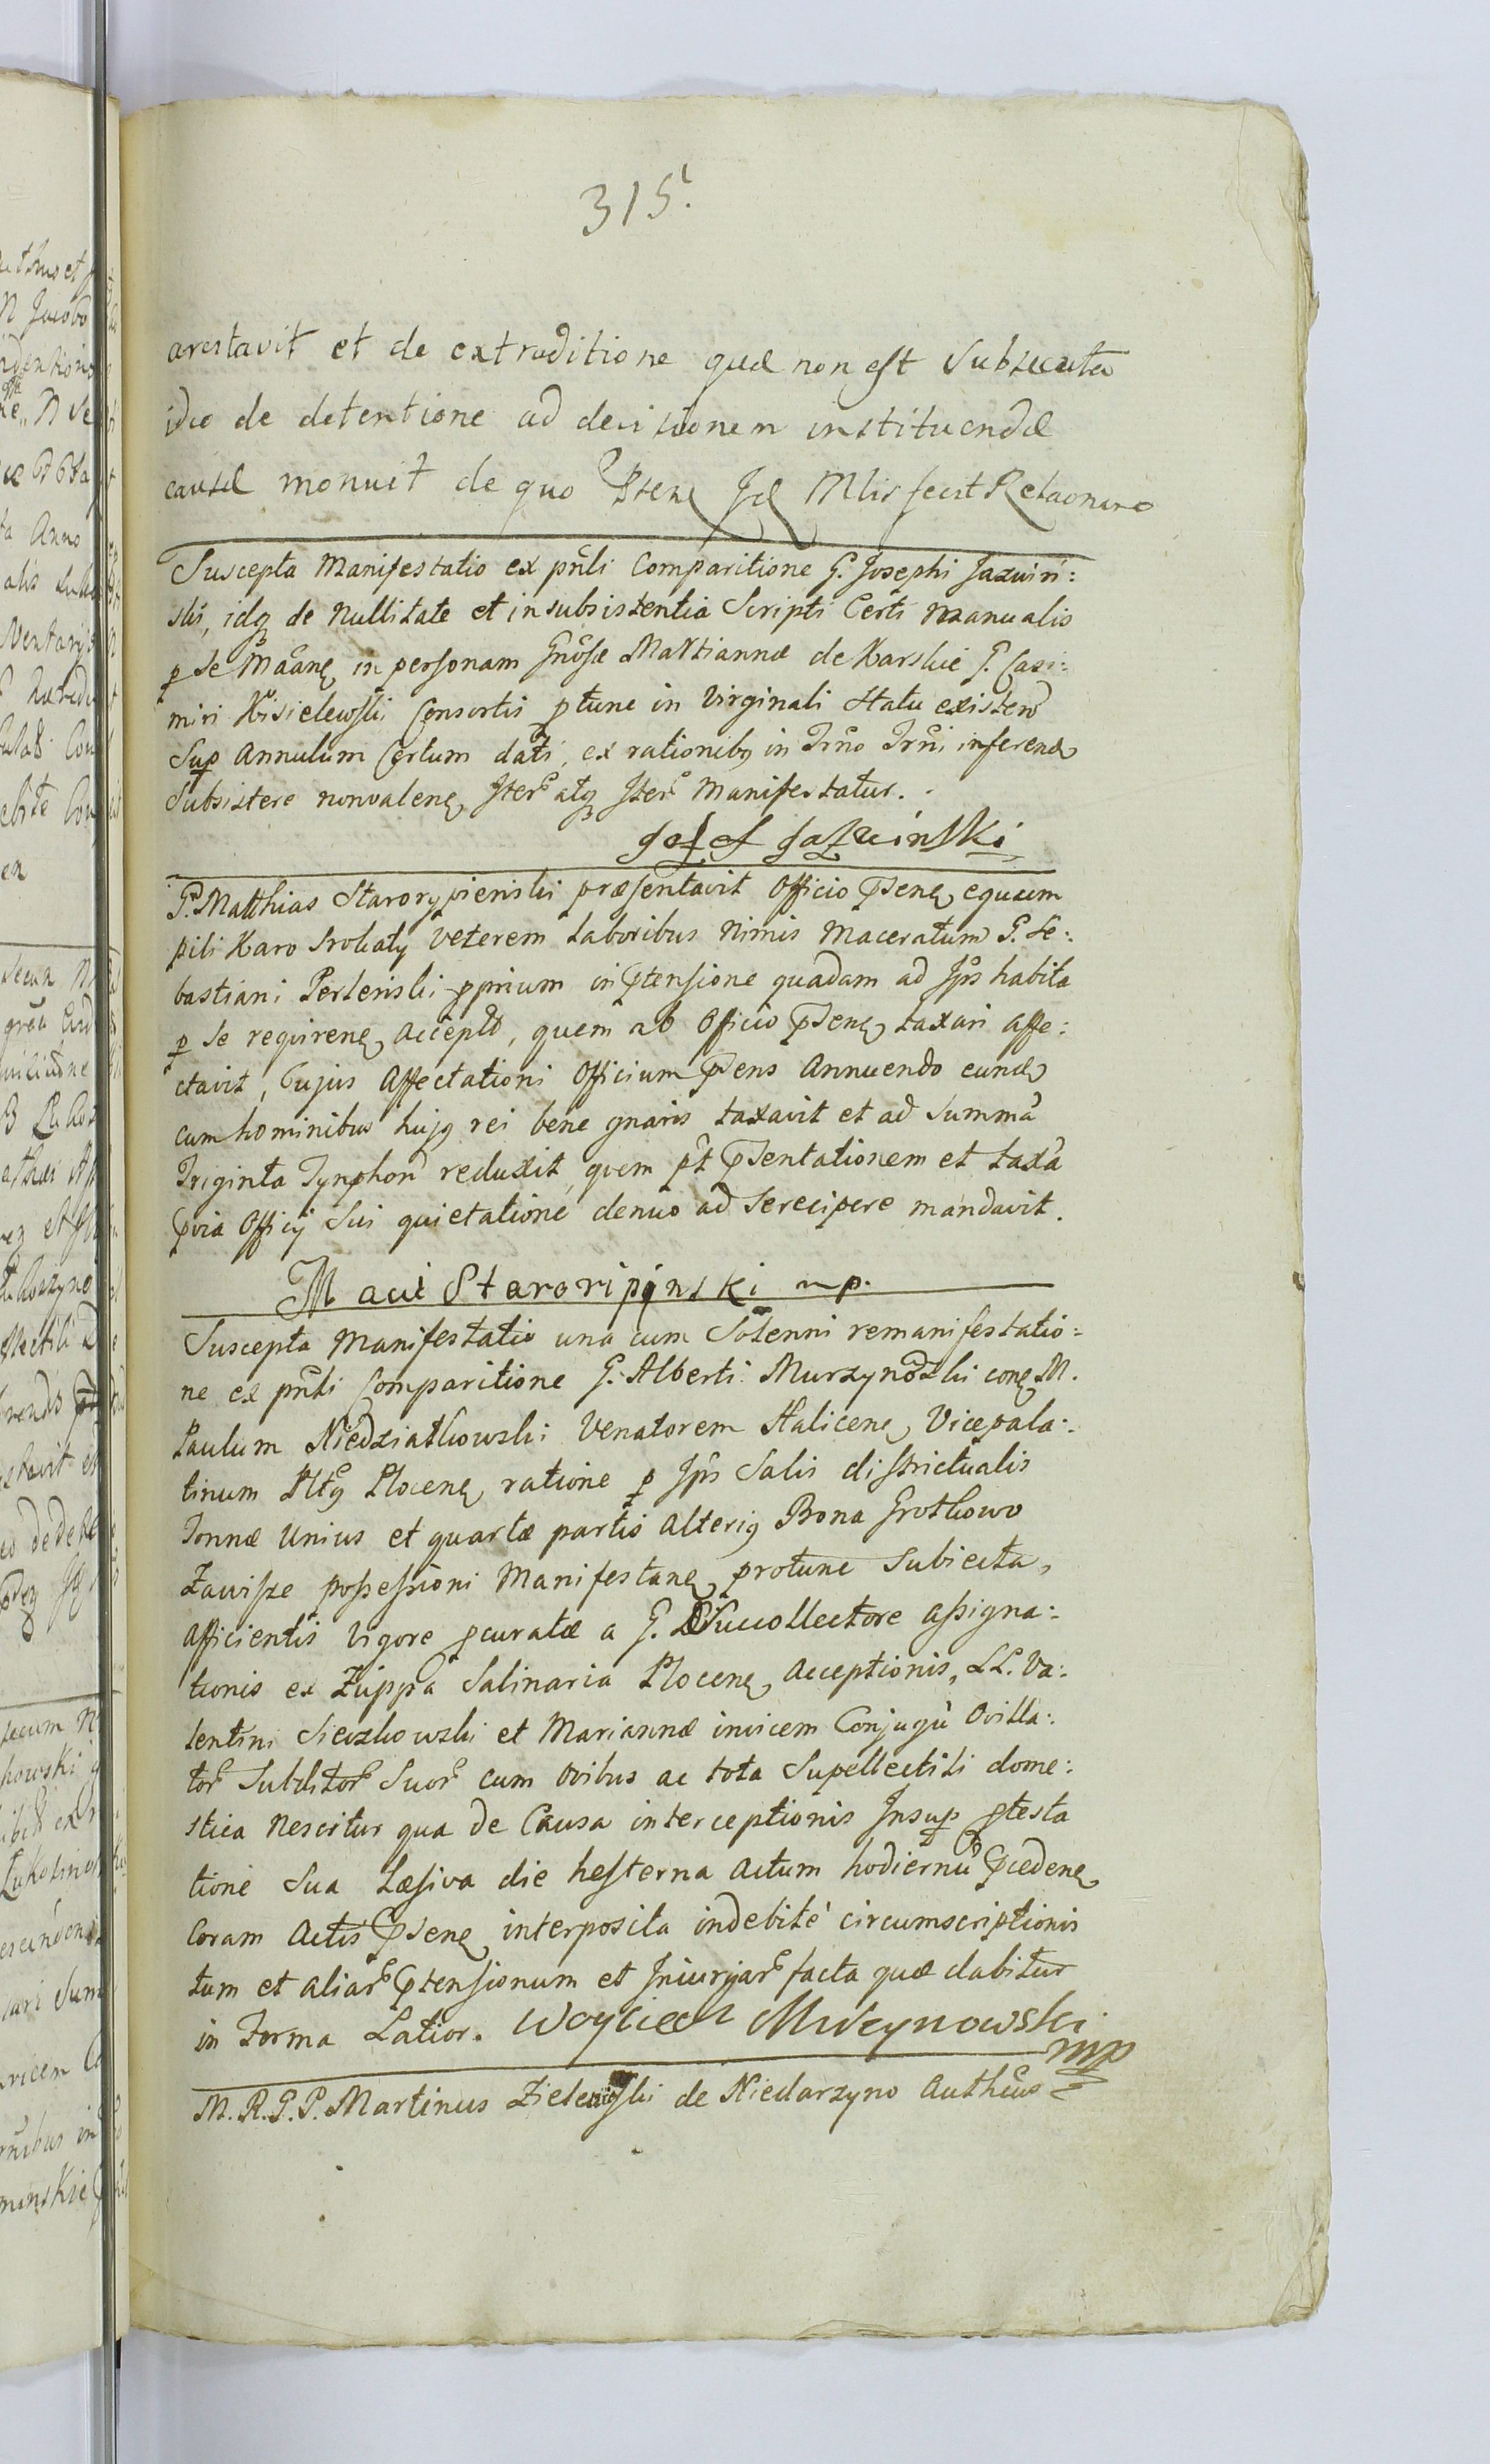 315.
arestavit et de extraditione quæ non est Subsecuta
ideo de detentione ad decisionem instituendæ
causæ monuit de quo Psens Idē Mlis fecit Relaonem
Suscepta Manifestatio ex pn̄ti Comparitione G. Josephi Jazwiń:
ski, idq de Nullitate et insubsistentia Scripti Certi Manualis
p se Māane in personam Gnōsæ Mariannæ de Karskie G. Casi:
miri Kisielewski Consortis ptunc in Virginali Statu existen
Sup Annulum Certum dati, ex rationibq in Trn̄o Trn̄i inferend
Subsistere nonvalen, Iter atq Iter Manifestatur.
Jozef Jazwinski
G. Matthias Starorypienski præsentavit Officio Psen, equum
pili Karo Srokaty Veterem Laboribus Nimis Maceratum G. Se:
bastiani Perlenski pprium in Ptensione quadam ad Ips habita
p Se requiren, Accept, quem ab Officio Psen, taxari Affe:
ctavit, Cujus Affectationi Officium Psens Annuendo eund
cum hominibus hujq rei bene gnaris taxavit et ad Summā
Triginta Tynphon reduxit, quem pt Psentationem et taxā
Pvia Officij Sui quietatione denuo ad Serecipere mandavit.
Maci Staroripinski mp.
Suscepta Manifestatio una cum Solenni remanifestatio:
ne ex pn̄ti Comparitione G. Alberti Murzynowski con, M.
Paulum Niedziałkowski Venatorem Halicen, Vicepala:
tinum Pltq Plocen, ratione p Ips Salis districtualis
Tonnæ Unius et quartæ partis Alteriq Bona Grotkowo
Zawisze possessioni Manifestan, protunc Subiecta,
afficientis vigore pcuratæ a G. Succollectore assigna:
tionis ex Zuppa Salinaria Plocen, Acceptionis, LL. Va:
lentini Sieczkowski et Mariannæ invicem Conjugū Ovilla:
tor Subditor Suor cum Ovibus ac tota Supellectili dome:
stica Nescitur qua de Causa interceptionis Insup ptesta
tione Sua Læsiva die hesterna Actum hodiernū Pceden,
Coram Actis Psen, interposita indebitè circumscriptionis
tum et aliar Ptensionum et Iniurijar facta quæ dabitur
in Forma Latior. Woyciech Murzynowski
mp
M. R. G. P. Martinus Zieleniski de Niedarzyno Authēus